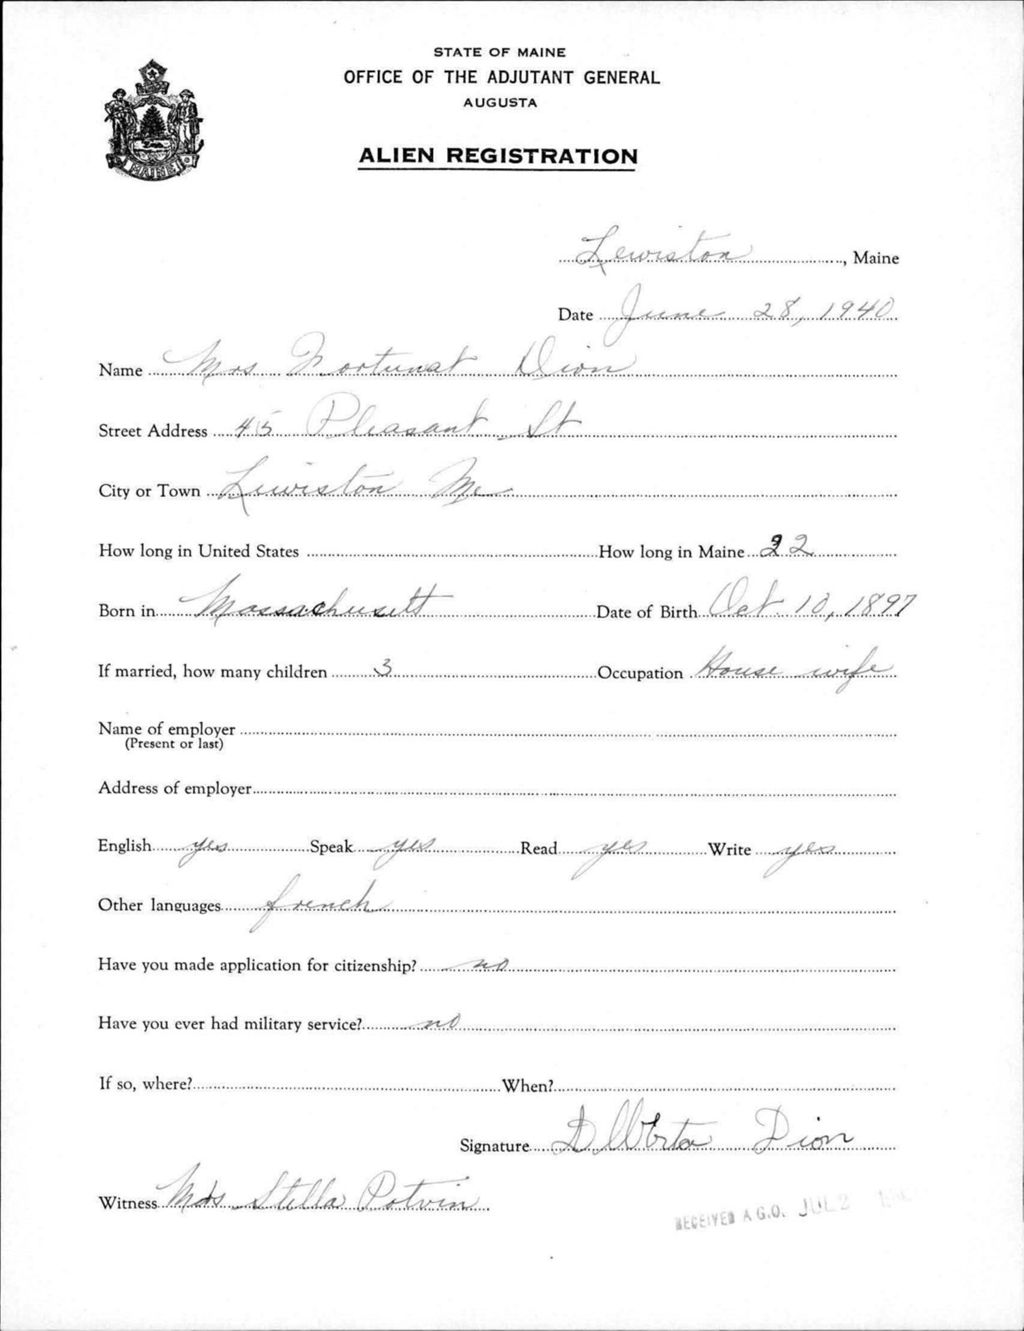 STATE OF MAINE
OFFICE OF THE ADJUTANT GENERAL
AUGUSTA
ALIEN REGISTRATION
MAINE
Lewiston, Maine
Date June 28, 1940
Name Mrs Fortunat Dion
Street Address 45 Pleasant St
City or Town Lewiston Me
How long in United States How long in Maine 22
Born in Massachusett Date of Birth Oct 10, 1897
If married, how many children 3 Occupation House wife
Name of employer
(Present or last)
Address of employer
English yes Speak yes Read yes Write yes
Other languages french
Have you made application for citizenship? no
Have you ever had military service? no
If so, where? When?
Signature Alberta Dion
Witness Mrs Stella Potvin
RECEIVED A.G.O. JUL 2